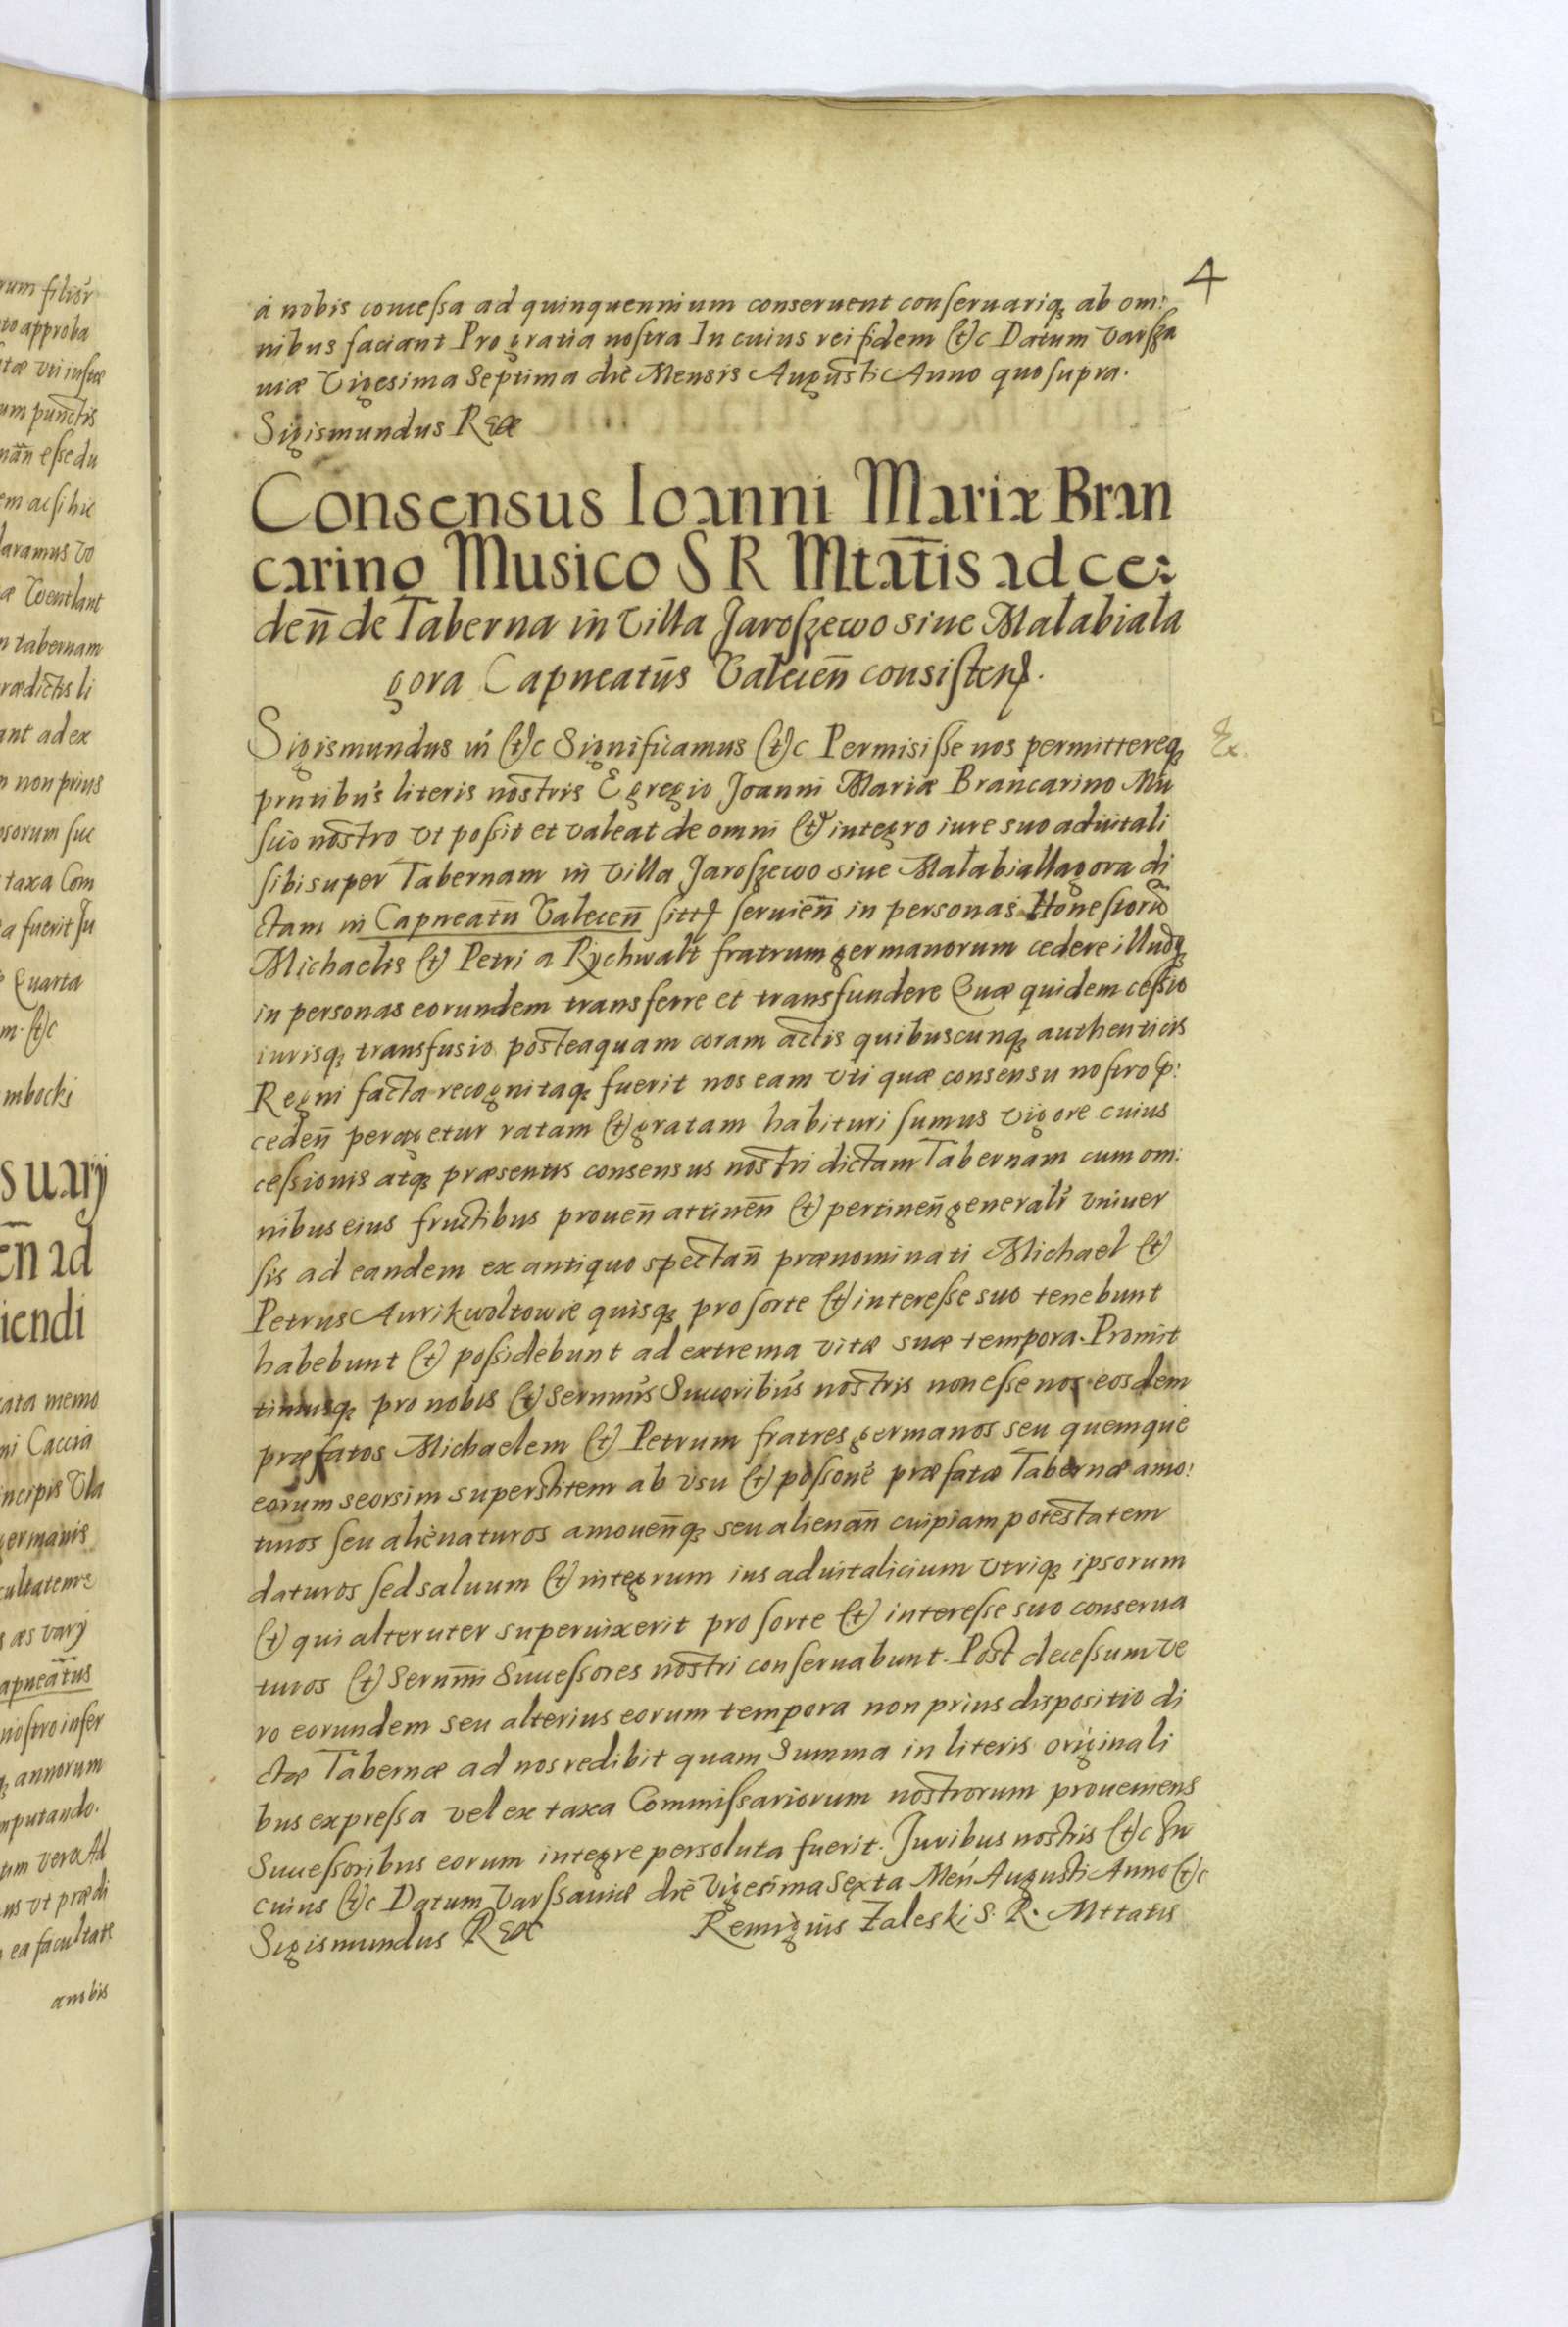 4
à nobis concessa ad quinquennium conseruent conseruariq; ab om:
nibus faciant Pro gratia nostra In cuius rei fidem &c Datum Varsza
uiæ Vigesima Septima die Mensis Augusti Anno quo supra.
Sigismundus Rex
Consensus Ioanni Mariæ Bran
carino Musico S R Mtatis ad ce:
den̄ de Taberna in Villa Jaroszewo siue Malabiala
gora Capneatus Valecen̄ consisten.
Sigismundus &c Significamus &c Permisisse nos permittereq;
prntibus literis nostris Egregio Joanni Mariæ Brancarino Mu
sico nostro vt possit et valeat de omni & integro iure suo aduitali
sibi super Tabernam in Villa Jaroszewo siue Malabiallagora di
ctam in Capneatu Valecen̄ seruien̄ in personas Honestorū
Michaelis & Petri a Rychwalt fratrum germanorum cedere illudq;
in personas eorundem transferre et transfundere Quæ quidem cessio
iurisq; transfusio posteaquam coram actis quibuscunq; authenticis
Regni facta recognitaq; fuerit nos eam vti quæ consensu nostro p:
ceden̄ peragetur ratam & gratam habituri sumus vigore cuius
cessionis atq; præsentis consensus nostri dictam Tabernam cum om:
nibus eius fructibus prouen̄ attinen̄ & pertinen̄ generalr vniuer
sis ad eandem ex antiquo spectan̄ prænominati Michael &
Petrus quisq; pro sorte & interesse suo tenebunt
habebunt & possidebunt ad extrema vitæ suæ tempora. Promit
timusq; pro nobis & Sernmis Succoribus nostris non esse nos eosdem
præfatos Michaelem & Petrum fratres germanos seu quemque
eorum seorsim superstitem ab vsu & possone præfatæ Tabernæ amo:
turos seu alienaturos amouen̄q; seu alienan̄ cuipiam potestatem
daturos sed saluum & integrum ius aduitalicium vtriq; ipsorum
& qui alteruter superuixerit pro sorte & interesse suo conserua
turos & Sernmi Successores nostri conseruabunt. Post decessum ve
ro eorundem seu alterius eorum tempora non prius dispositio di
ctæ Tabernæ ad nos redibit quam Summa in literis originali
bus expressa vel ex taxa Commissariorum nostrorum proueniens
Successoribus eorum integre persoluta fuerit. Juribus nostris &c In
cuius &c Datum Varssauiæ die Vigesima Sexta Men Augusti Anno &c
Sigismundus Rex Remigius Zaleski S. R. Mttatis
rum filior
to approba
um punctis
esse du
em ac si hic
laramus vo
æ Wentlant
n tabernam
rædictis li
ant ad ex
n non prius
sorum suc
taxa Com
a fuerit Ju
Quarta
m. &c
mbocki
suarij
en ad
iendi
ata memo
ni Caccia
incipis Vla
germanis
cultatem
apneatus
nostro infer
q; annorum
mputando.
um vero Ad
us vt prædi
ea facultate
a nobis